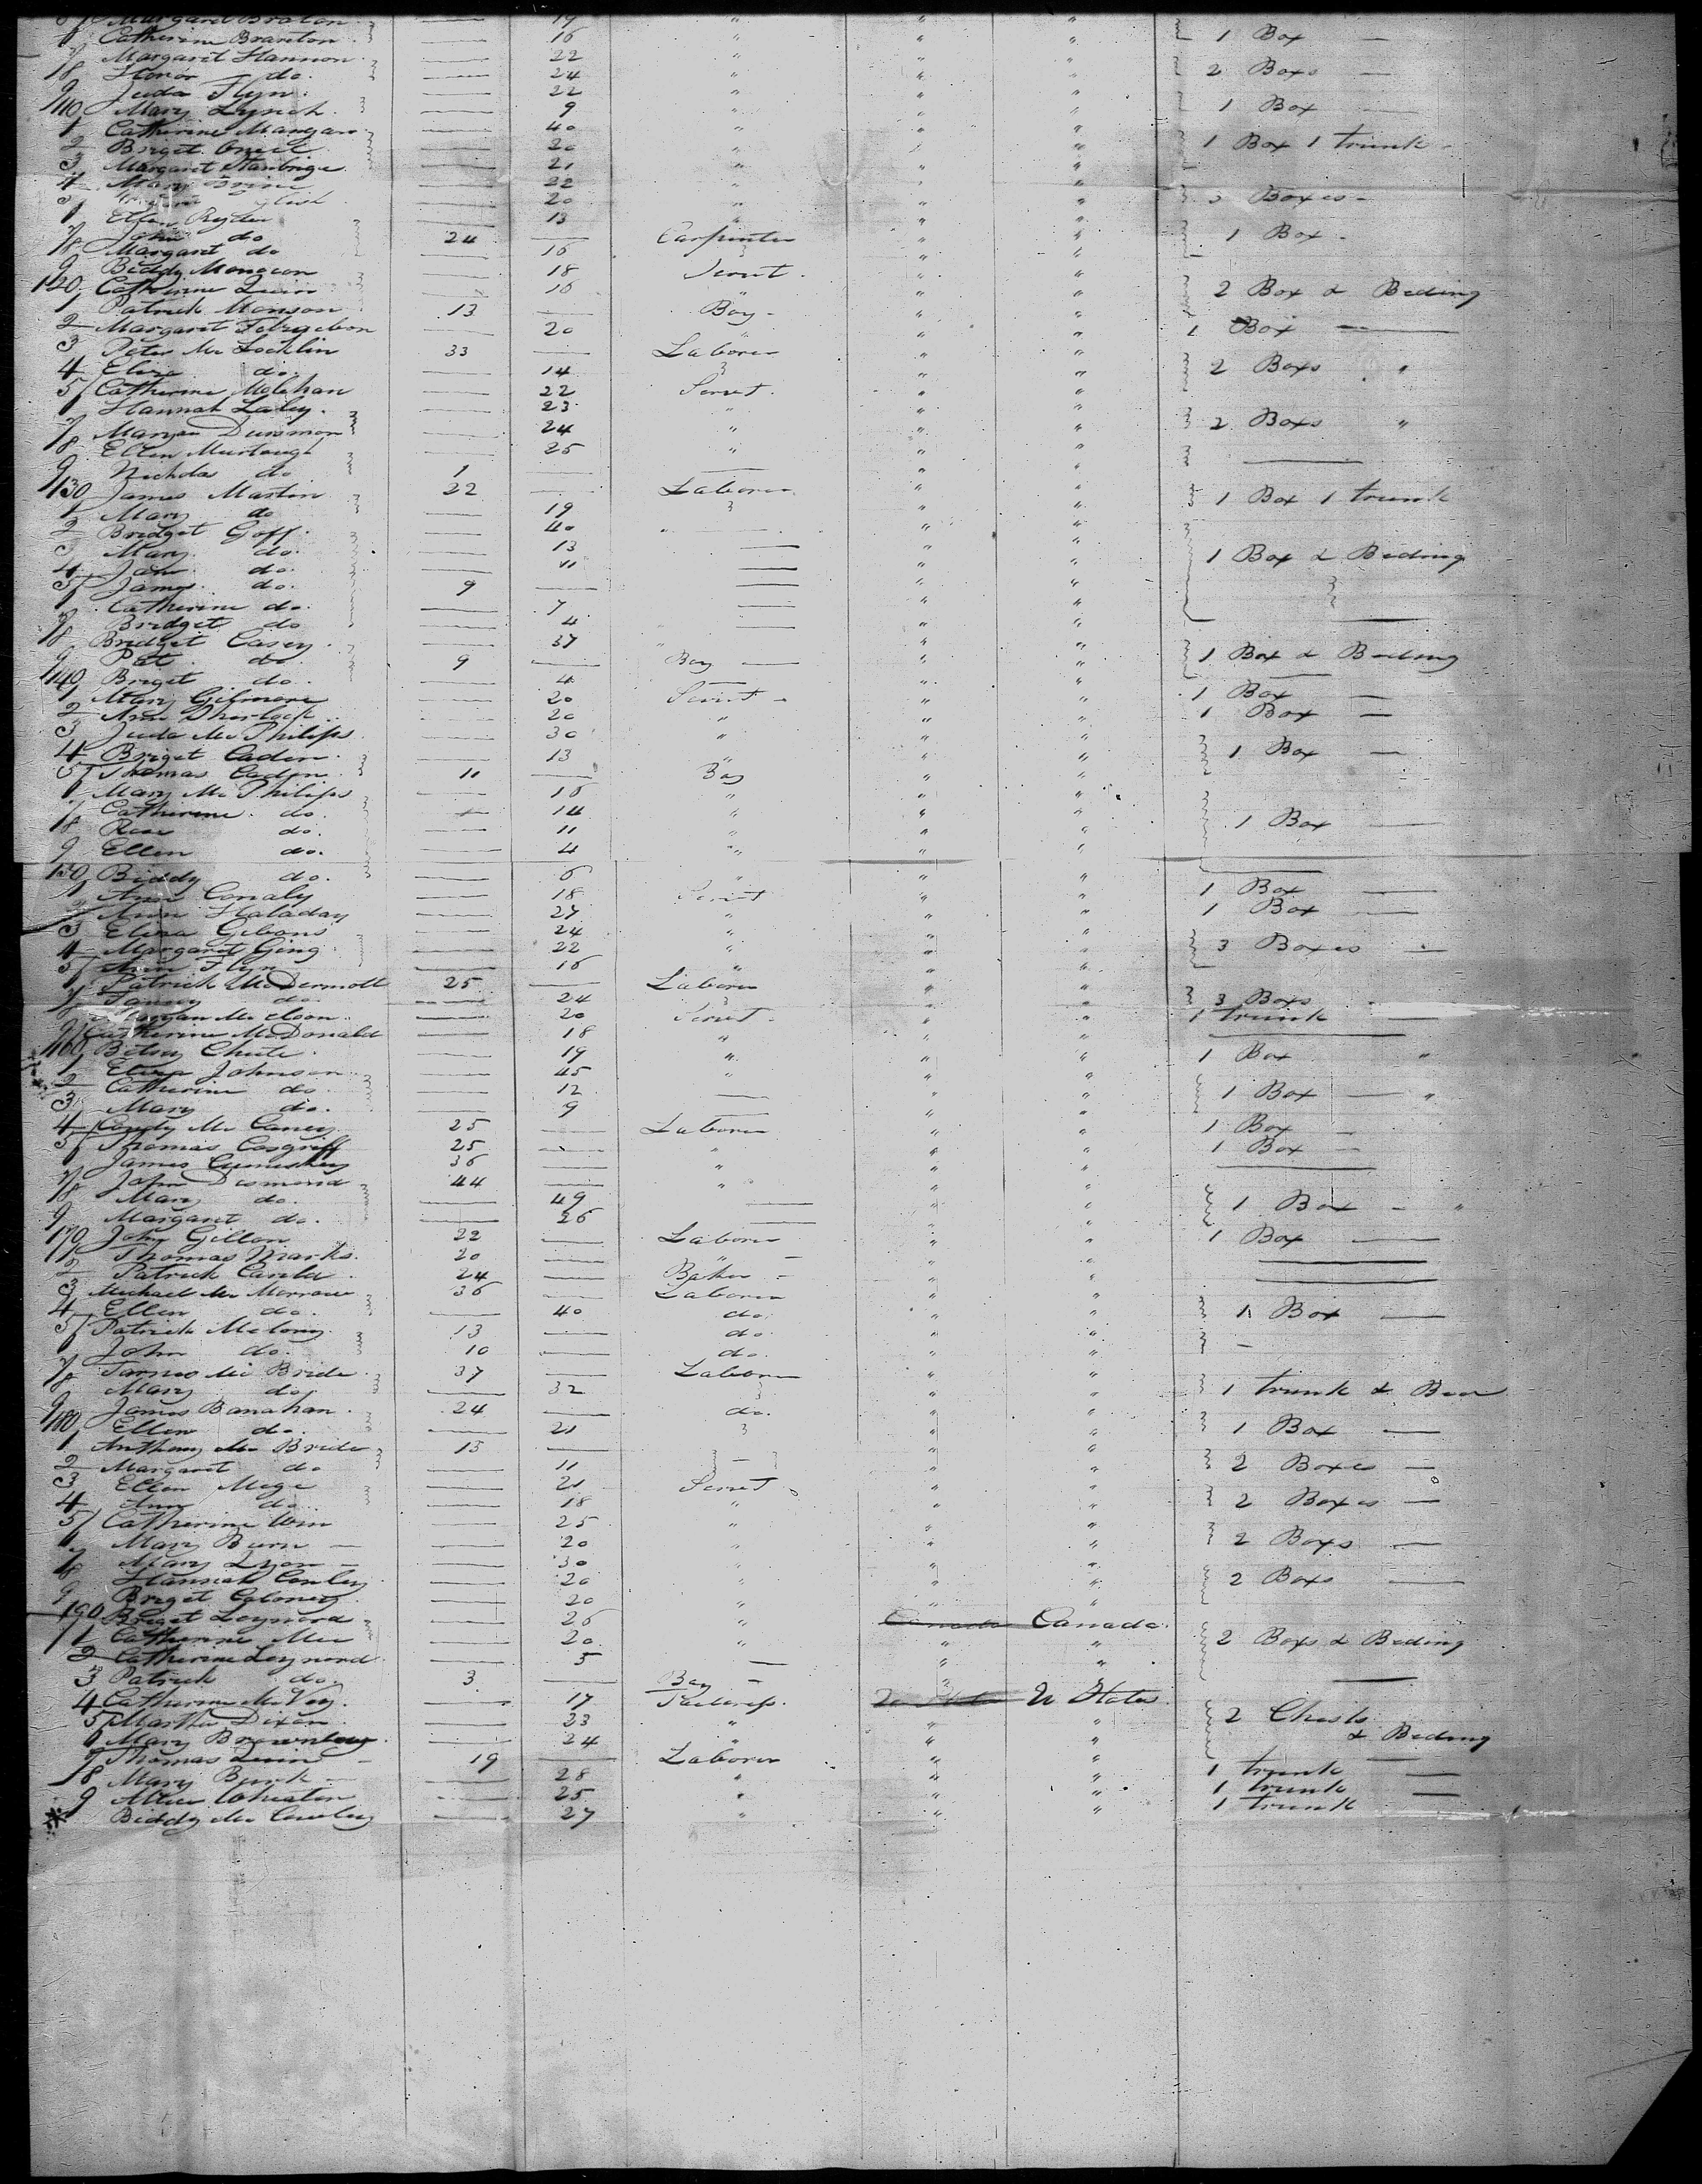 Margaret Braton 19 "
Catherine Branton 16 " " " 1 Box
7 Margaret Hannon 22 " " "
8 Honor do. 24 " " " 2 Boxs
9 Juda Flyn 22 " " "
110 Mary Lynch 9 " " " 1 Box
1 Catherine Mangan 40 " " "
2 Briget 20 " " " 1 Box 1 trunk
3 Margaret Stanbrige 21 " " "
4 Mary 22 " " "
5 20 " " " Boxes
6 Ellen Ryder 13 " " "
7 John do 24 Carpenter " " 1 Box
8 Margaret do 16 " "
9 Biddy Monocon 18 Servt. " "
120 Catherine Quinn 16 " " " 2 Box & Beding
1 Patrick Monson 13 Boy " "
2 Margaret 20 " " " 1 Box
3 Peter Mc Locklin 33 Laborer " "
4 Eliza do. 14 " " 2 Boxs "
5 Catherine Molehan 22 Servt. " "
6 Hannah Laley. 23 " " "
7 Maryan 24 " " " 2 Boxs "
8 Ellen Murtaugh 25 " " "
9 Nicholas do 1 " "
130 James Martin 22 Laborer " " 1 Box 1 trunk
1 Mary do 19 " "
2 Bridget Goff 40 " " "
3 Mary do. 13 " "
4 John do. 11 " " 1 Box & Beding
5 James do. 9 " "
6 Catherine do. 7 " "
7 Bridget do 4 " "
8 Bridget Casey 37 " " "
9 Pat do 9 Boy " " 1 Box & Beding
140 Briget do. 4 " "
1 Mary Gilmore 20 Servt " " 1 Box
2 Ann Sherlock 20 " " " 1 Box
3 Juda Mc Philips 30 " " "
4 Briget Caden 13 " " " 1 Box
5 Thomas Caden 11 Boy " "
6 Mary Mc Philips 16 " " "
7 Catherine do. 14 " " "
8 Rose do. 11 " " " 1 Box
9 Ellen do. 4 " " "
150 Biddy do. 6 " " "
1 Ann Conaly 18 Servt " " 1 Box
2 Ann Haladay 27 " " " 1 Box
3 Eliza Gibons 24 " " "
4 Margaret Ging 22 " " " 3 Boxes
5 Ann Flyn 16 " " "
6 Patrick McDermott 25 Laborer " "
7 Fanny do 24 " " 3 Boxs
8 20 Servt. " " 1 trunk
9 Catherine McDonald 18 " " "
160 Betsy Chute 19 " " " 1 Box "
1 Eliza Johnson 45 " " "
2 Catherine do 12 " " 1 Box "
3 Mary do. 9 " "
4 Condy Mc Caney 25 Laborer " " 1 Box
5 Thomas Cosgriff 25 " " " 1 Box
6 James 36 " " "
7 John Desmond 44 " " "
8 Mary do. 49 " " 1 Box "
9 Margaret do. 26 " "
170 John Gillon 22 Laborer " " 1 Box
1 Thomas Marks 20 " " "
2 Patrick 24 Baker " "
3 Michael Mc Morrow 36 Laborer " "
4 Ellen do. 40 do. " " 1 Box
5 Patrick Malony 13 do. " "
6 John do. 10 do. " "
7 James Mc Bride 37 Laborer " "
8 Mary do 32 " " 1 trunk &
9 James Banahan 24 do. " "
180 Ellen do. 21 " " 1 Box
1 Anthony Mc Bride 15 " "
2 Margaret do 11 " " 2 Boxes
3 Ellen Mega 21 Servt " "
4 Ann do. 18 " " " 2 Boxes
5 Catherine 25 " " "
6 Mary Burn 20 " " " 2 Boxs
7 Mary Lyon 30 " " "
8 Hannah Conley 20 " " " 2 Boxs
9 Briget 20 " " "
190 Briget Leynord 26 " Canada Canada
1 Catherine Mee 20 " " " 2 Boxs & Beding
2 Catherine Leynord 5 " "
3 Patrick do. 3 Boy "
4 Catherine McVey. 17 Tailoress. U States
5 Martha Dixon 23 " " " 2 Chests
6 Mary Brownlow 24 " " " & Beding
7 Thomas Quinn 19 Laborer " "
8 Mary Burk 28 " " " 1 trunk
9 Alice Wheaton 25 " " " 1 trunk
Biddy Mc Cawley 27 " " " 1 trunk